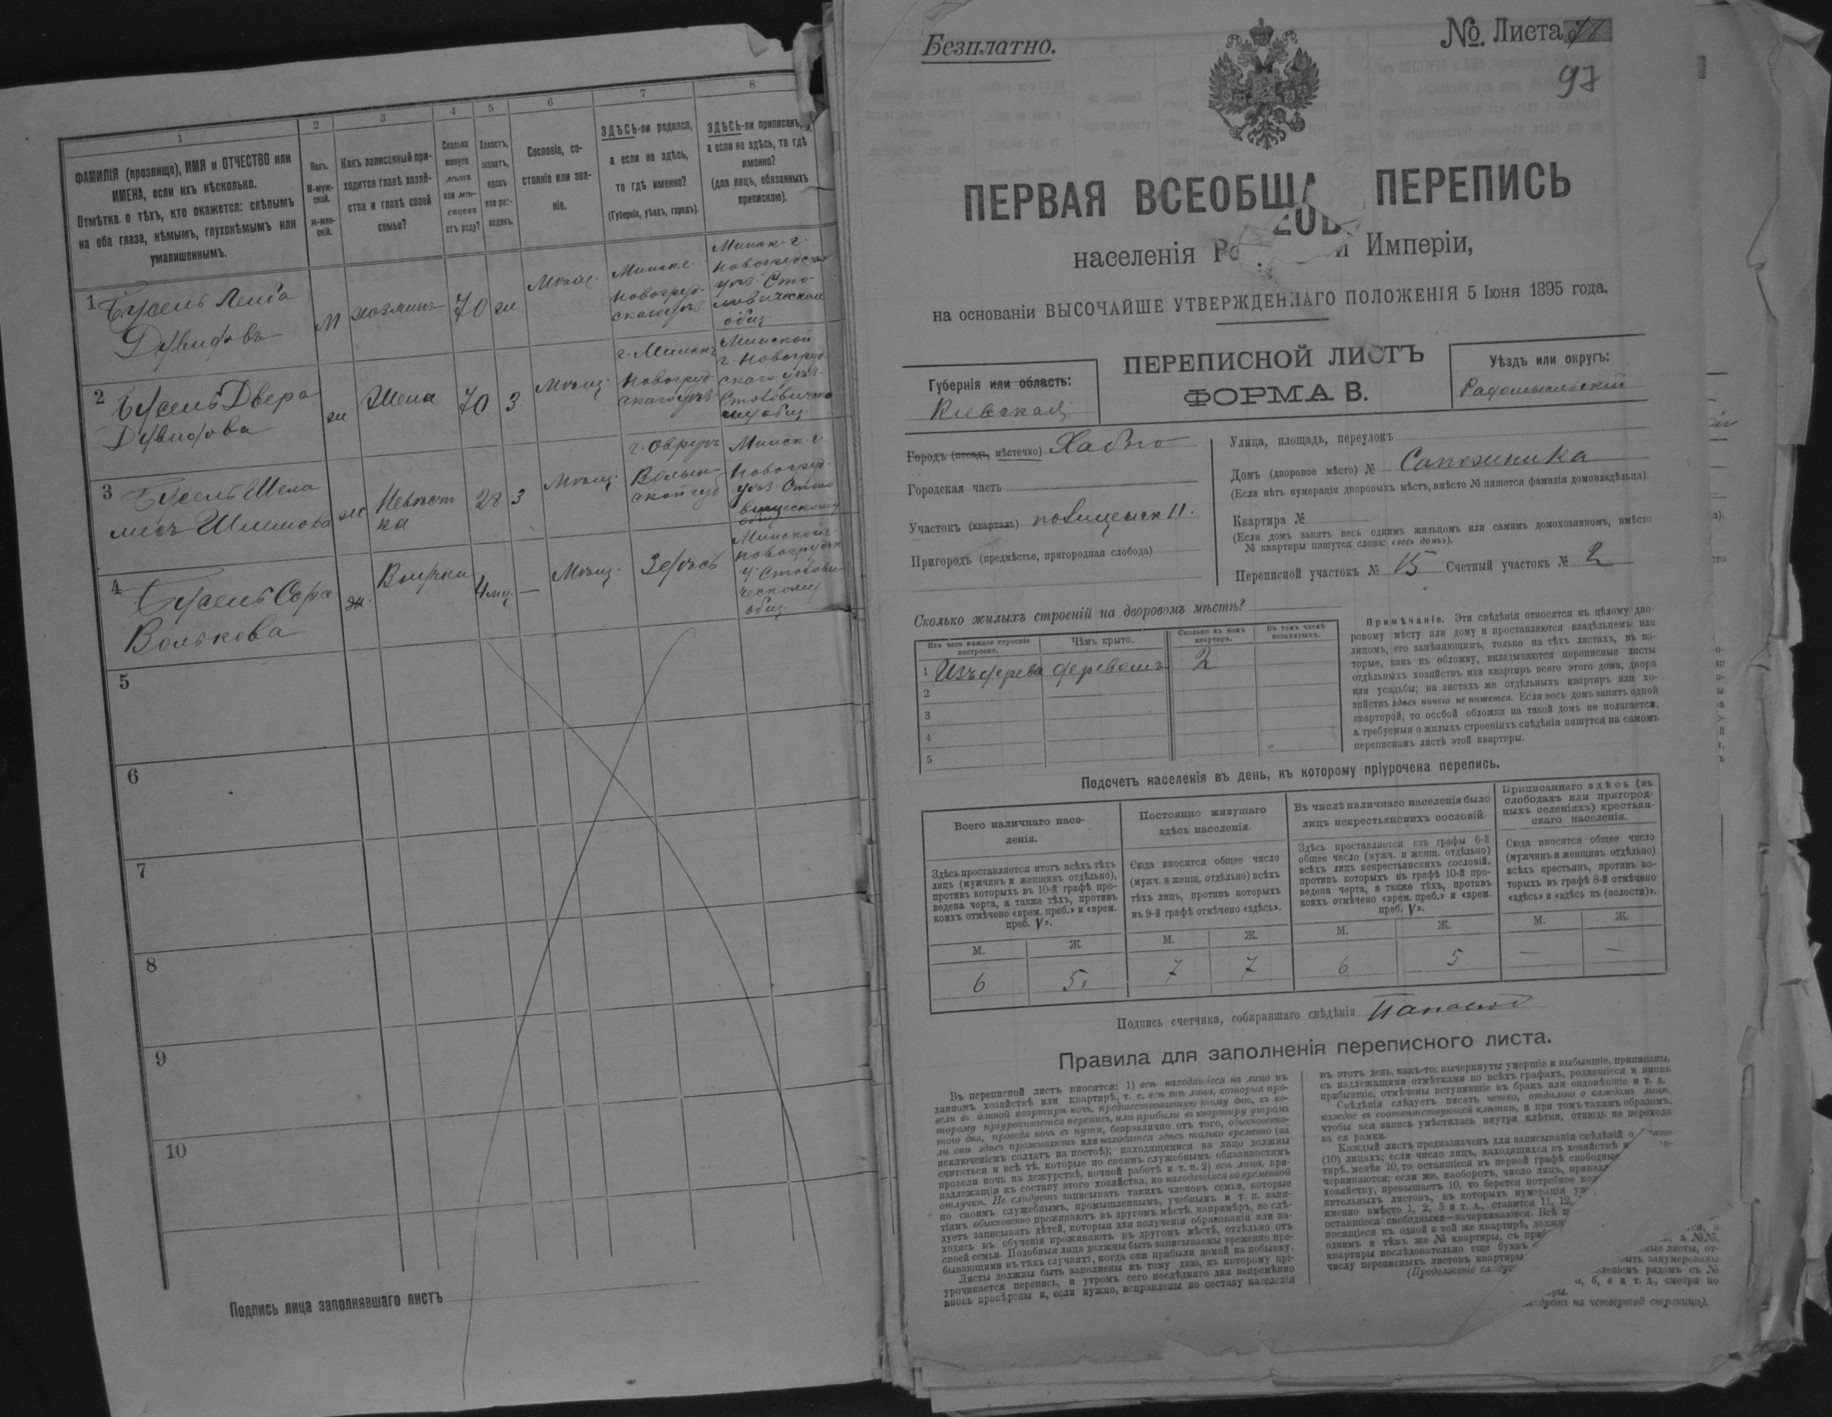 1
2
3
4
5
6
7
8
ФАМИЛІЯ (прозвища), ИМЯ и ОТЧЕСТВО или
ИМЕНА, если ихъ нѣсколько.
Отмѣтка о тѣхъ, кто окажется: слѣпымъ
на оба глаза, нѣмымъ, глухонѣмымъ или
умалишеннымъ.
Полъ.
М-муж-
ской.
Ж-жен-
скій.
Какъ записанный при-
ходится главѣ хозяй-
ства и главѣ своей
семьи?
Сколько
минуло
лѣтъ
или мѣ-
сяцевъ
отъ роду?
Холостъ,
женатъ,
вдовъ
или раз-
веденъ.
Сословіе, со-
стояніе или зва-
ніе.
ЗДѢСЬ-ли родился,
а если не здѣсь,
то гдѣ именно?
(Губернія, уѣздъ, городъ).
ЗДѢСЬ-ли приписанъ,
а если не здѣсь, то гдѣ
именно?
(для лицъ, обязанныхъ
припискою).
1
Бусель Лейба
Дувидовъ
м
хозяинъ
70
жи
Мѣщ.
Минск. г.
Новогруд-
скаго уѣз.
Минск. г.
2
Бусель Двера
Дувидова
ж
Жена
70
3
Мѣщ.
г. Минск
Новогруд
скаго уѣз.
Минской
г. Новогруд
скаго уѣз.
3
Бусель Шела
Шлемова
ж
Невѣст
ка
28
3
Мѣщ.
г. Овручъ
Волын-
ской губ
Минск. г.
Новогруд.
4
Бусель Сора
Волькова
ж.
Внучка
4 мц.
—
Мѣщ.
Здѣсь
Минской г.
5
6
7
8
9
10
Подпись лица заполнявшаго листъ
Безплатно.
№. Листа
97
ПЕРВАЯ ВСЕОБЩАЯ ПЕРЕПИСЬ
населенія Ро и Имперіи,
на основаніи ВЫСОЧАЙШЕ УТВЕРЖДЕННАГО ПОЛОЖЕНІЯ 5 Іюня 1895 года.
Губернія или область:
Кіевская
ПЕРЕПИСНОЙ ЛИСТЪ
ФОРМА В.
Уѣздъ или округъ:
Радомысльскій
Городъ (посадъ, мѣстечко) Хабно
Городская часть
Участокъ (кварталъ) полицейск 11.
Пригородъ (предмѣстье, пригородная слобода)
Улица, площадь, переулокъ
Домъ (дворовое мѣсто) № Сапожника
(Если нѣтъ нумераціи дворовыхъ мѣстъ, вмѣсто № пишется фамилія домовладѣльца).
Квартира №
(Если домъ занятъ весь однимъ жильцомъ или самимъ домохозяиномъ, вмѣсто
№ квартиры пишутся слова: «весь домъ»).
Переписной участокъ № 15 Счетный участокъ № 2
Сколько жилыхъ строеній на дворовомъ мѣстѣ?
Изъ чего каждое строеніе
построено.
Чѣмъ крыто.
Сколько въ немъ
квартиръ.
Въ томъ числѣ
незанятыхъ.
1 Изъ дерева деревомъ 2
2
3
4
5
Примѣчаніе. Эти свѣдѣнія относятся къ цѣлому дво-
ровому мѣсту или дому и проставляются владѣльцемъ или
лицомъ, его замѣняющимъ, только на тѣхъ листахъ, въ ко-
торые, какъ въ обложку, вкладываются переписные листы
отдѣльныхъ хозяйствъ или квартиръ всего этого дома, двора
или усадьбы; на листахъ же отдѣльныхъ квартиръ или хо-
зяйствъ здѣсь ничего не пишется. Если весь домъ занятъ одной
квартирой, то особой обложки на такой домъ не полагается,
а требуемыя о жилыхъ строеніяхъ свѣдѣнія пишутся на самомъ
переписномъ листѣ этой квартиры.
Подсчетъ населенія въ день, къ которому пріурочена перепись.
Всего наличнаго насе-
ленія.
Постоянно живущаго
здѣсь населенія.
Въ числѣ наличнаго населенія было
лицъ некрестьянскихъ сословій.
Приписаннаго здѣсь (въ
слободахъ или пригород-
ныхъ селеніяхъ) крестьян-
скаго населенія.
Здѣсь проставляется итогъ всѣхъ тѣхъ
лицъ (мужчинъ и женщинъ отдѣльно),
противъ которыхъ въ 10-й графѣ про-
ведена черта, а также тѣхъ, противъ
коихъ отмѣчено «врем. преб.» и «врем.
преб. V».
Сюда вносится общее число
(мужч. и женщ. отдѣльно) всѣхъ
тѣхъ лицъ, противъ которыхъ
въ 9-й графѣ отмѣчено «здѣсь».
Здѣсь проставляется изъ графы 6-й
общее число (мужч. и женщ. отдѣльно)
всѣхъ лицъ некрестьянскихъ сословій,
противъ которыхъ въ графѣ 10-й про-
ведена черта, а также тѣхъ, противъ
коихъ отмѣчено «врем. преб.» и «врем.
преб. V».
Сюда вносится общее число
(мужчинъ и женщинъ отдѣльно)
всѣхъ крестьянъ, противъ ко-
торыхъ въ графѣ 8-й отмѣчено
«здѣсь» и «здѣсь къ (волости)».
М. Ж. М. Ж. М. Ж. М. Ж.
6 5 7 7 6 5 — —
Подпись счетчика, собиравшаго свѣдѣнія
Правила для заполненія переписного листа.
Въ переписной листъ вносятся: 1) всѣ находящіеся на лицо въ
данномъ хозяйствѣ или квартирѣ, т. е. всѣ тѣ лица, которыя про-
вели въ данной квартирѣ ночь, предшествовавшую тому дню, къ ко-
торому пріурочивается перепись, или прибыли въ квартиру утромъ
того дня, проведя ночь въ пути, безразлично отъ того, обыкновенно-
ли они здѣсь проживаютъ или находятся здѣсь только временно (за
исключеніемъ солдатъ на постоѣ); находящимися на лицо должны
считаться и всѣ тѣ, которые по своимъ служебнымъ обязанностямъ
провели ночь на дежурствѣ, ночной работѣ и т. п. 2) всѣ лица, при-
надлежащія къ составу этого хозяйства, но находящіяся во временной
отлучкѣ. Не слѣдуетъ записывать такихъ членовъ семьи, которые
по своимъ служебнымъ, промышленнымъ, учебнымъ и т. п. заня-
тіямъ обыкновенно проживаютъ въ другомъ мѣстѣ, напримѣръ, не слѣ-
дуетъ записывать дѣтей, которыя для полученія образованія или на-
ходясь въ обученіи проживаютъ въ другомъ мѣстѣ, отдѣльно отъ
своей семьи. Подобныя лица должны быть записываемы временно пре-
бывающими въ тѣхъ случаяхъ, когда они прибыли домой на побывку.
Листы должны быть заполнены къ тому дню, къ которому прі-
урочивается перепись, и утромъ сего послѣдняго дня непремѣнно
вновь провѣрены и, если нужно, исправлены по составу населенія
въ этотъ день, какъ-то: вычеркнуты умершіе и выбывшіе, приписаны,
съ надлежащими отмѣтками во всѣхъ графахъ, родившіеся и вновь
прибывшіе, отмѣчены вступившіе въ бракъ или овдовѣвшіе и т. д.
Свѣдѣнія слѣдуетъ писать четко, отдѣльно о каждомъ лицѣ,
каждое въ соотвѣтствующей клѣткѣ, и при томъ такимъ образомъ,
чтобы вся запись умѣстилась внутри клѣтки, отнюдь не переходя
за ея рамки.
Каждый листъ предназначенъ для записыванія свѣдѣній о
(10) лицахъ; если число лицъ, находящихся въ хозяйствѣ
тирѣ, менѣе 10, то оставшіеся въ первой графѣ свободные
черкиваются; если же, наоборотъ, число лицъ,
хозяйству, превышаетъ 10, то берется потребное
нительныхъ листовъ, въ которыхъ нумерація
именно вмѣсто 1, 2, 3 и т. д., ставится 11, 12,
оставшіеся свободными—зачеркиваются.
носящіеся къ одной и той же квартирѣ,
однимъ и тѣмъ же № квартиры, съ
квартиры послѣдовательно еще буквъ
числу переписныхъ листовъ квартиры
(Продолженіе
ные листы, от-
быть занумерованы
рядомъ съ №
а, б, в и т. д., смотря по
на четвертой страницѣ).